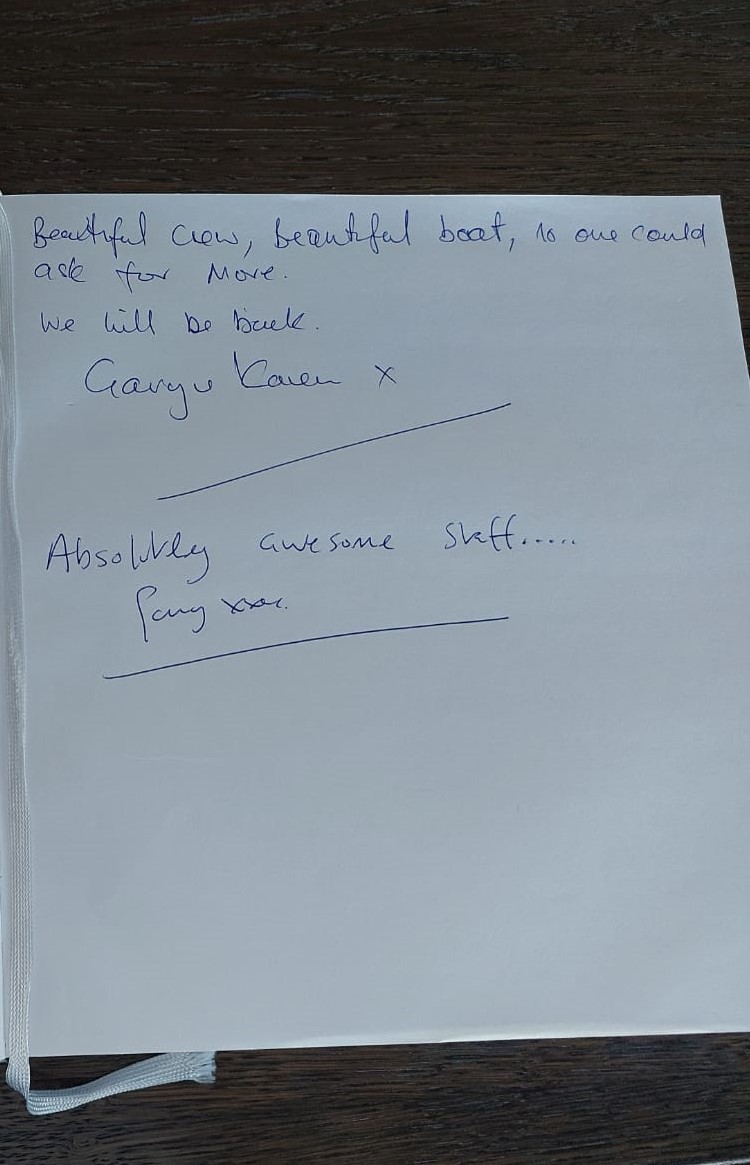 Beautiful crew, beautiful boat, no one could
ask for more.
We will be back.
Gary & Karen x
Absolutely awesome staff.....
xxx.